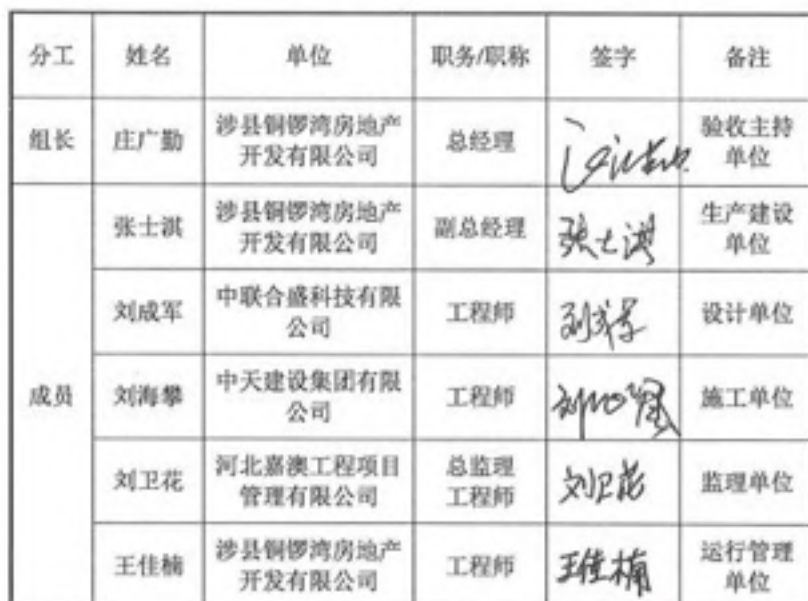 分工 姓名 单位 职务/职称 签字 备注
组长 庄广勤 涉县铜锣湾房地产
开发有限公司 总经理 验收主持
单位
成员 张士淇 涉县铜锣湾房地产
开发有限公司 副总经理 张士淇 生产建设
单位
刘成军 中联合盛科技有限
公司 工程师 刘成军 设计单位
刘海攀 中天建设集团有限
公司 工程师 施工单位
刘卫花 河北嘉澳工程项目
管理有限公司 总监理
工程师 刘卫花 监理单位
王佳楠 涉县铜锣湾房地产
开发有限公司 工程师 王佳楠 运行管理
单位